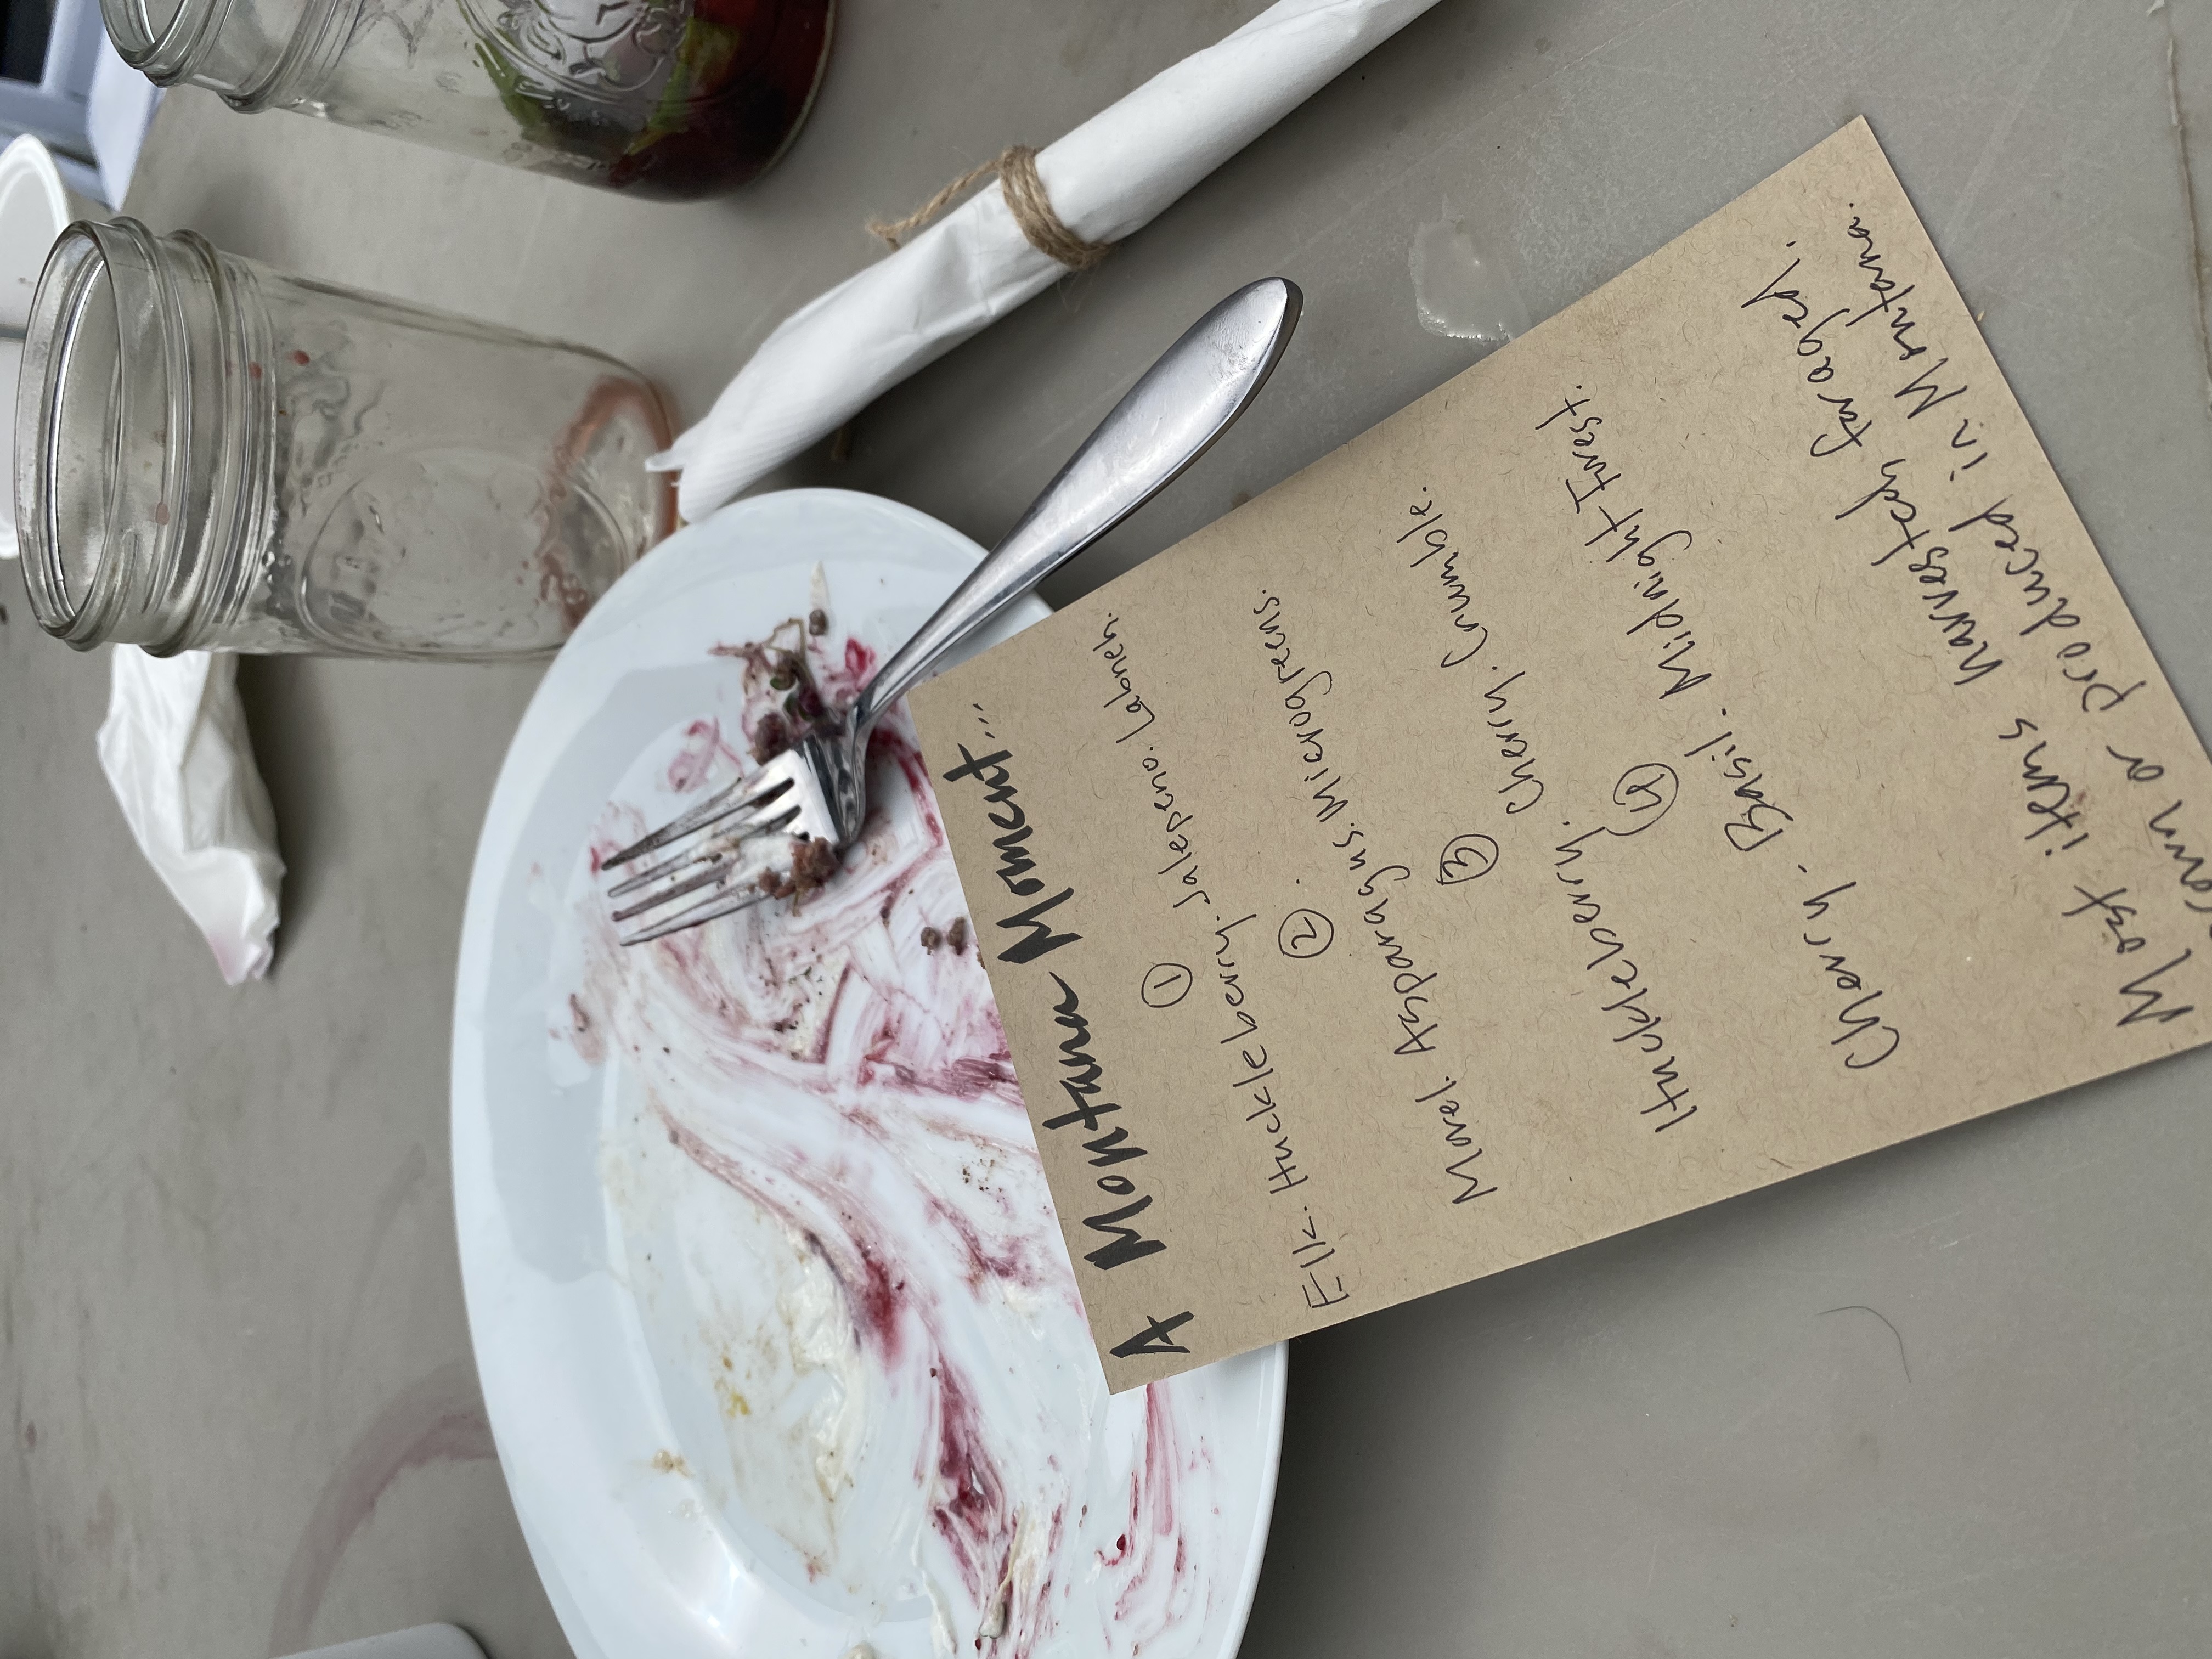 A Montana Moment...
①
Elk. Huckleberry. Jalepeno. Labneh.
②
Morel. Asparagus. Microgreens.
③
Huckleberry. Cherry. Crumble.
④
Cherry. Basil. Midnight Forest.
Most items harvested, foraged,
or produced in Montana.